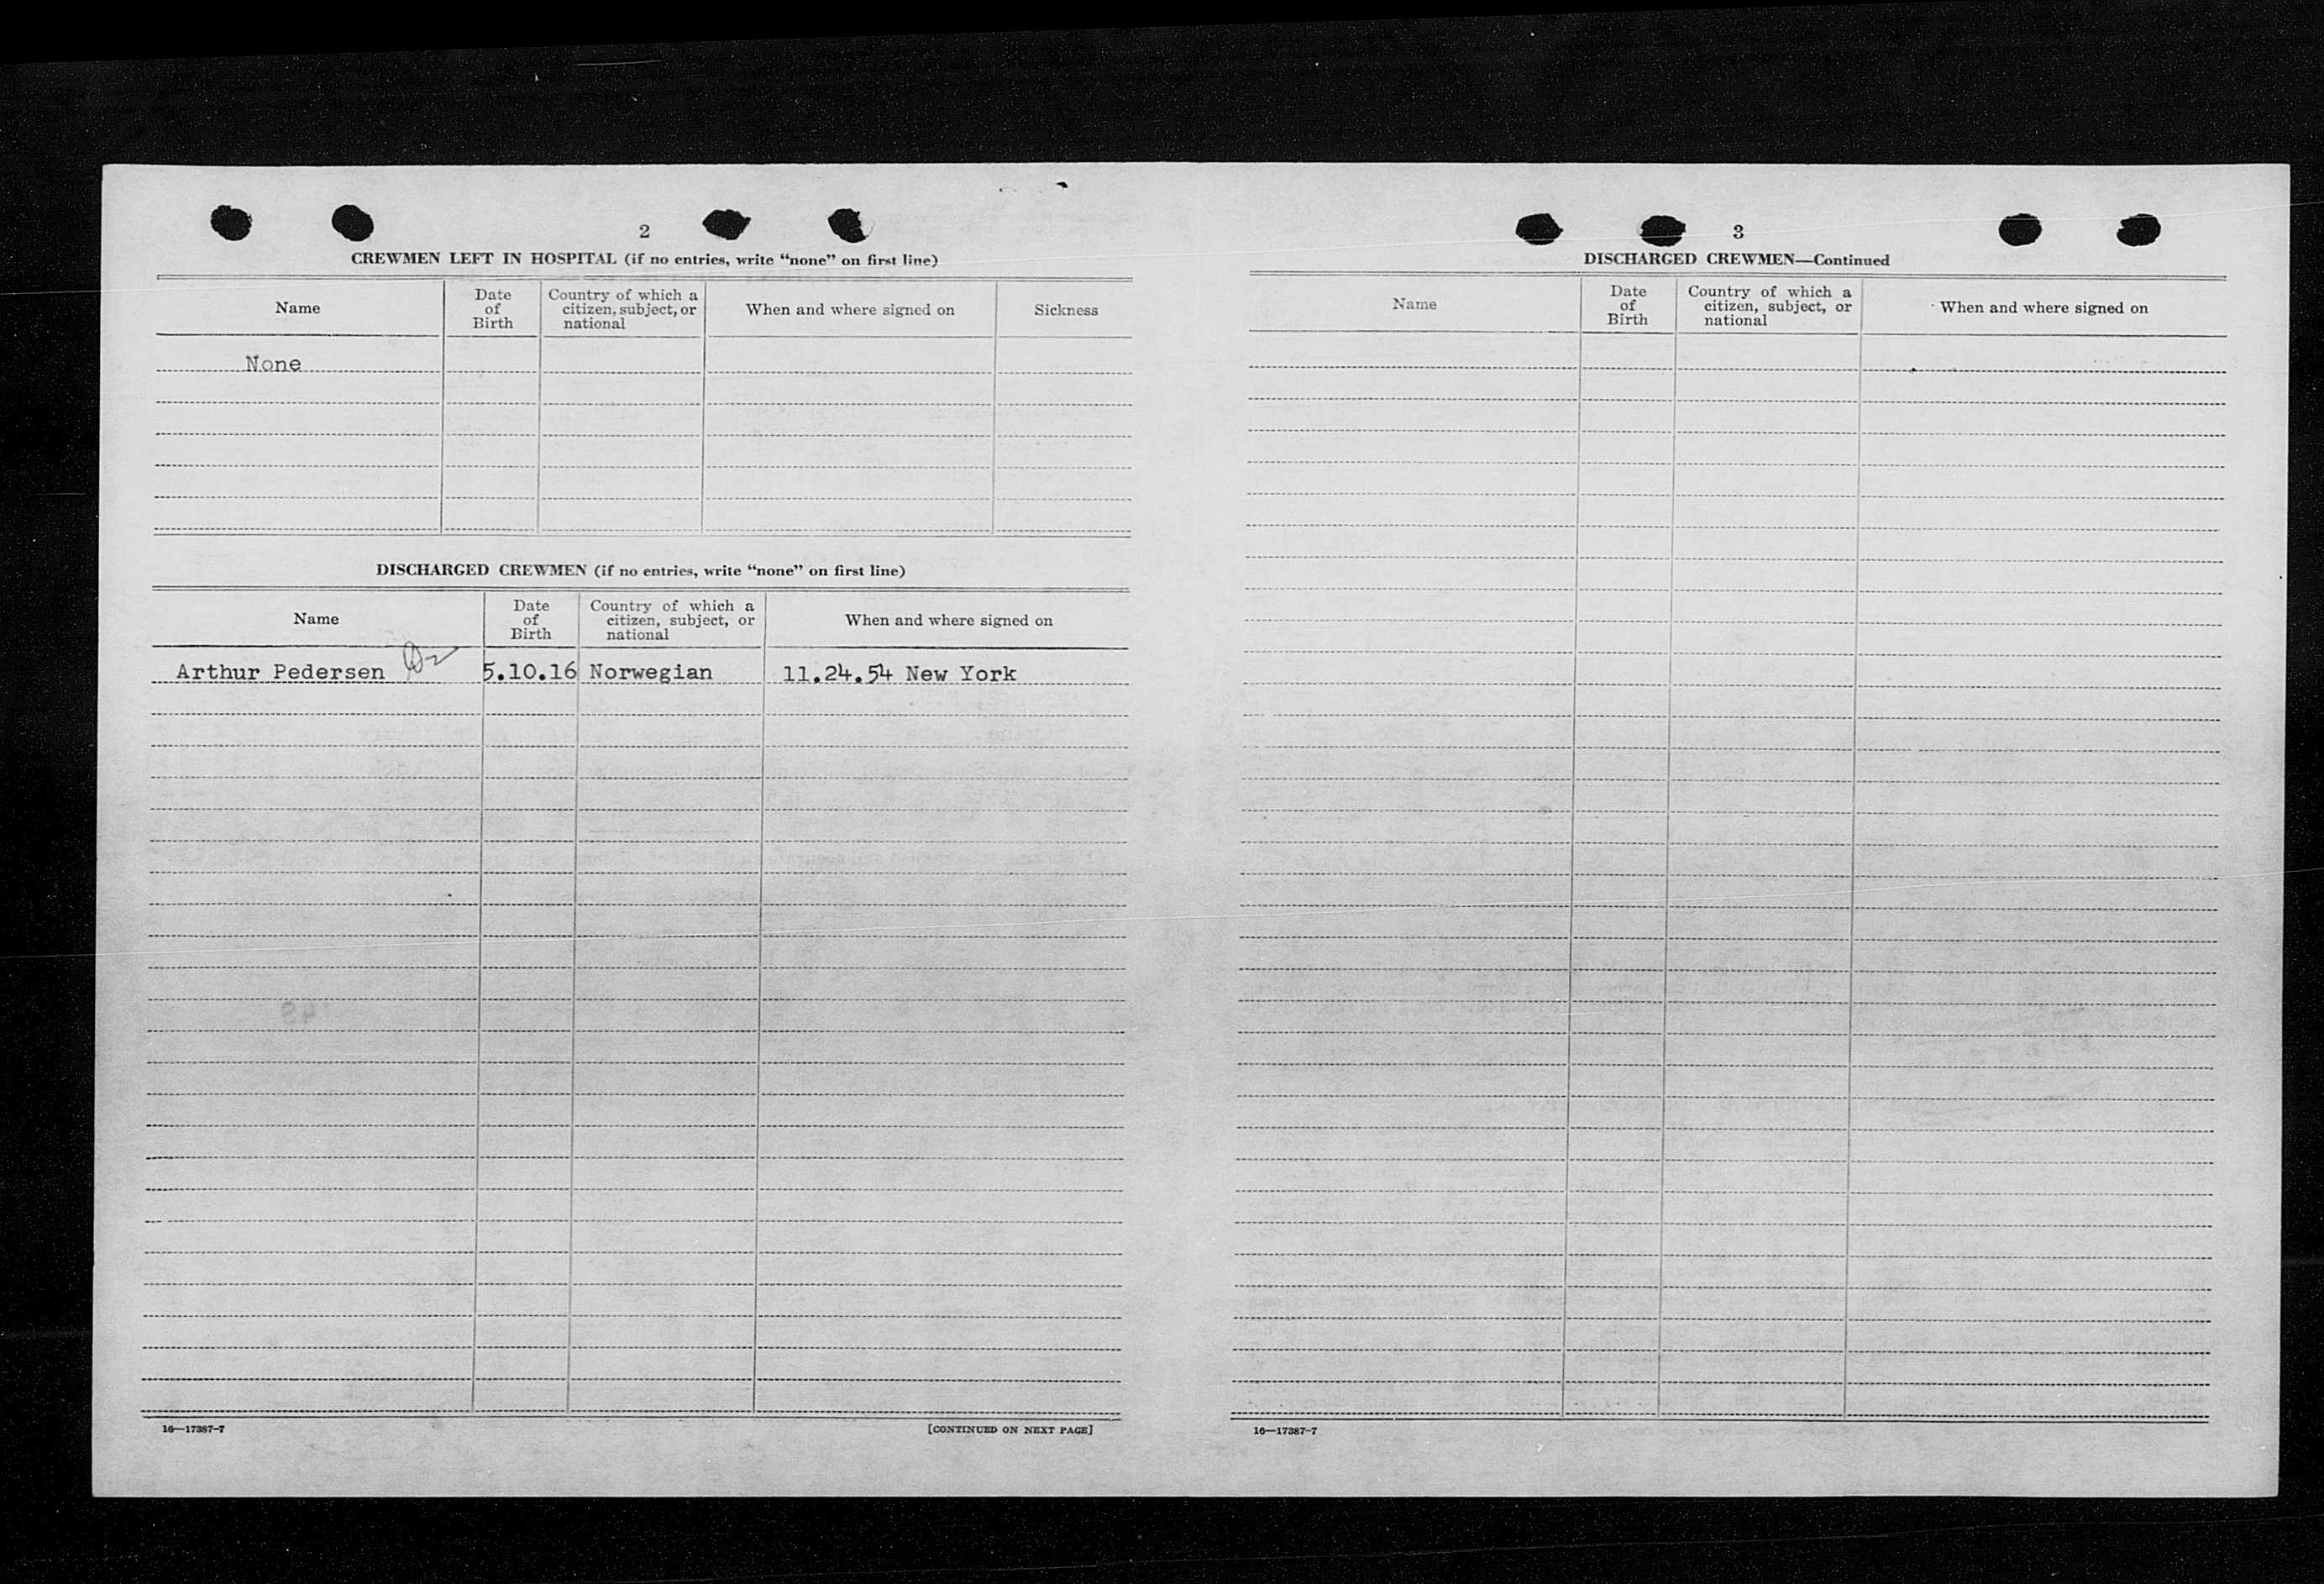 2
CREWMEN LEFT IN HOSPITAL (if no entries, write “none” on first line)
Name
Date of Birth
Country of which a citizen, subject, or national
When and where signed on
Sickness
None
DISCHARGED CREWMEN (if no entries, write “none” on first line)
Name
Date of Birth
Country of which a citizen, subject, or national
When and where signed on
Arthur Pedersen 5.10.16 Norwegian 11.24.54 New York
16—17387-7
[CONTINUED ON NEXT PAGE]
3
DISCHARGED CREWMEN—Continued
Name
Date of Birth
Country of which a citizen, subject, or national
When and where signed on
16—17387-7